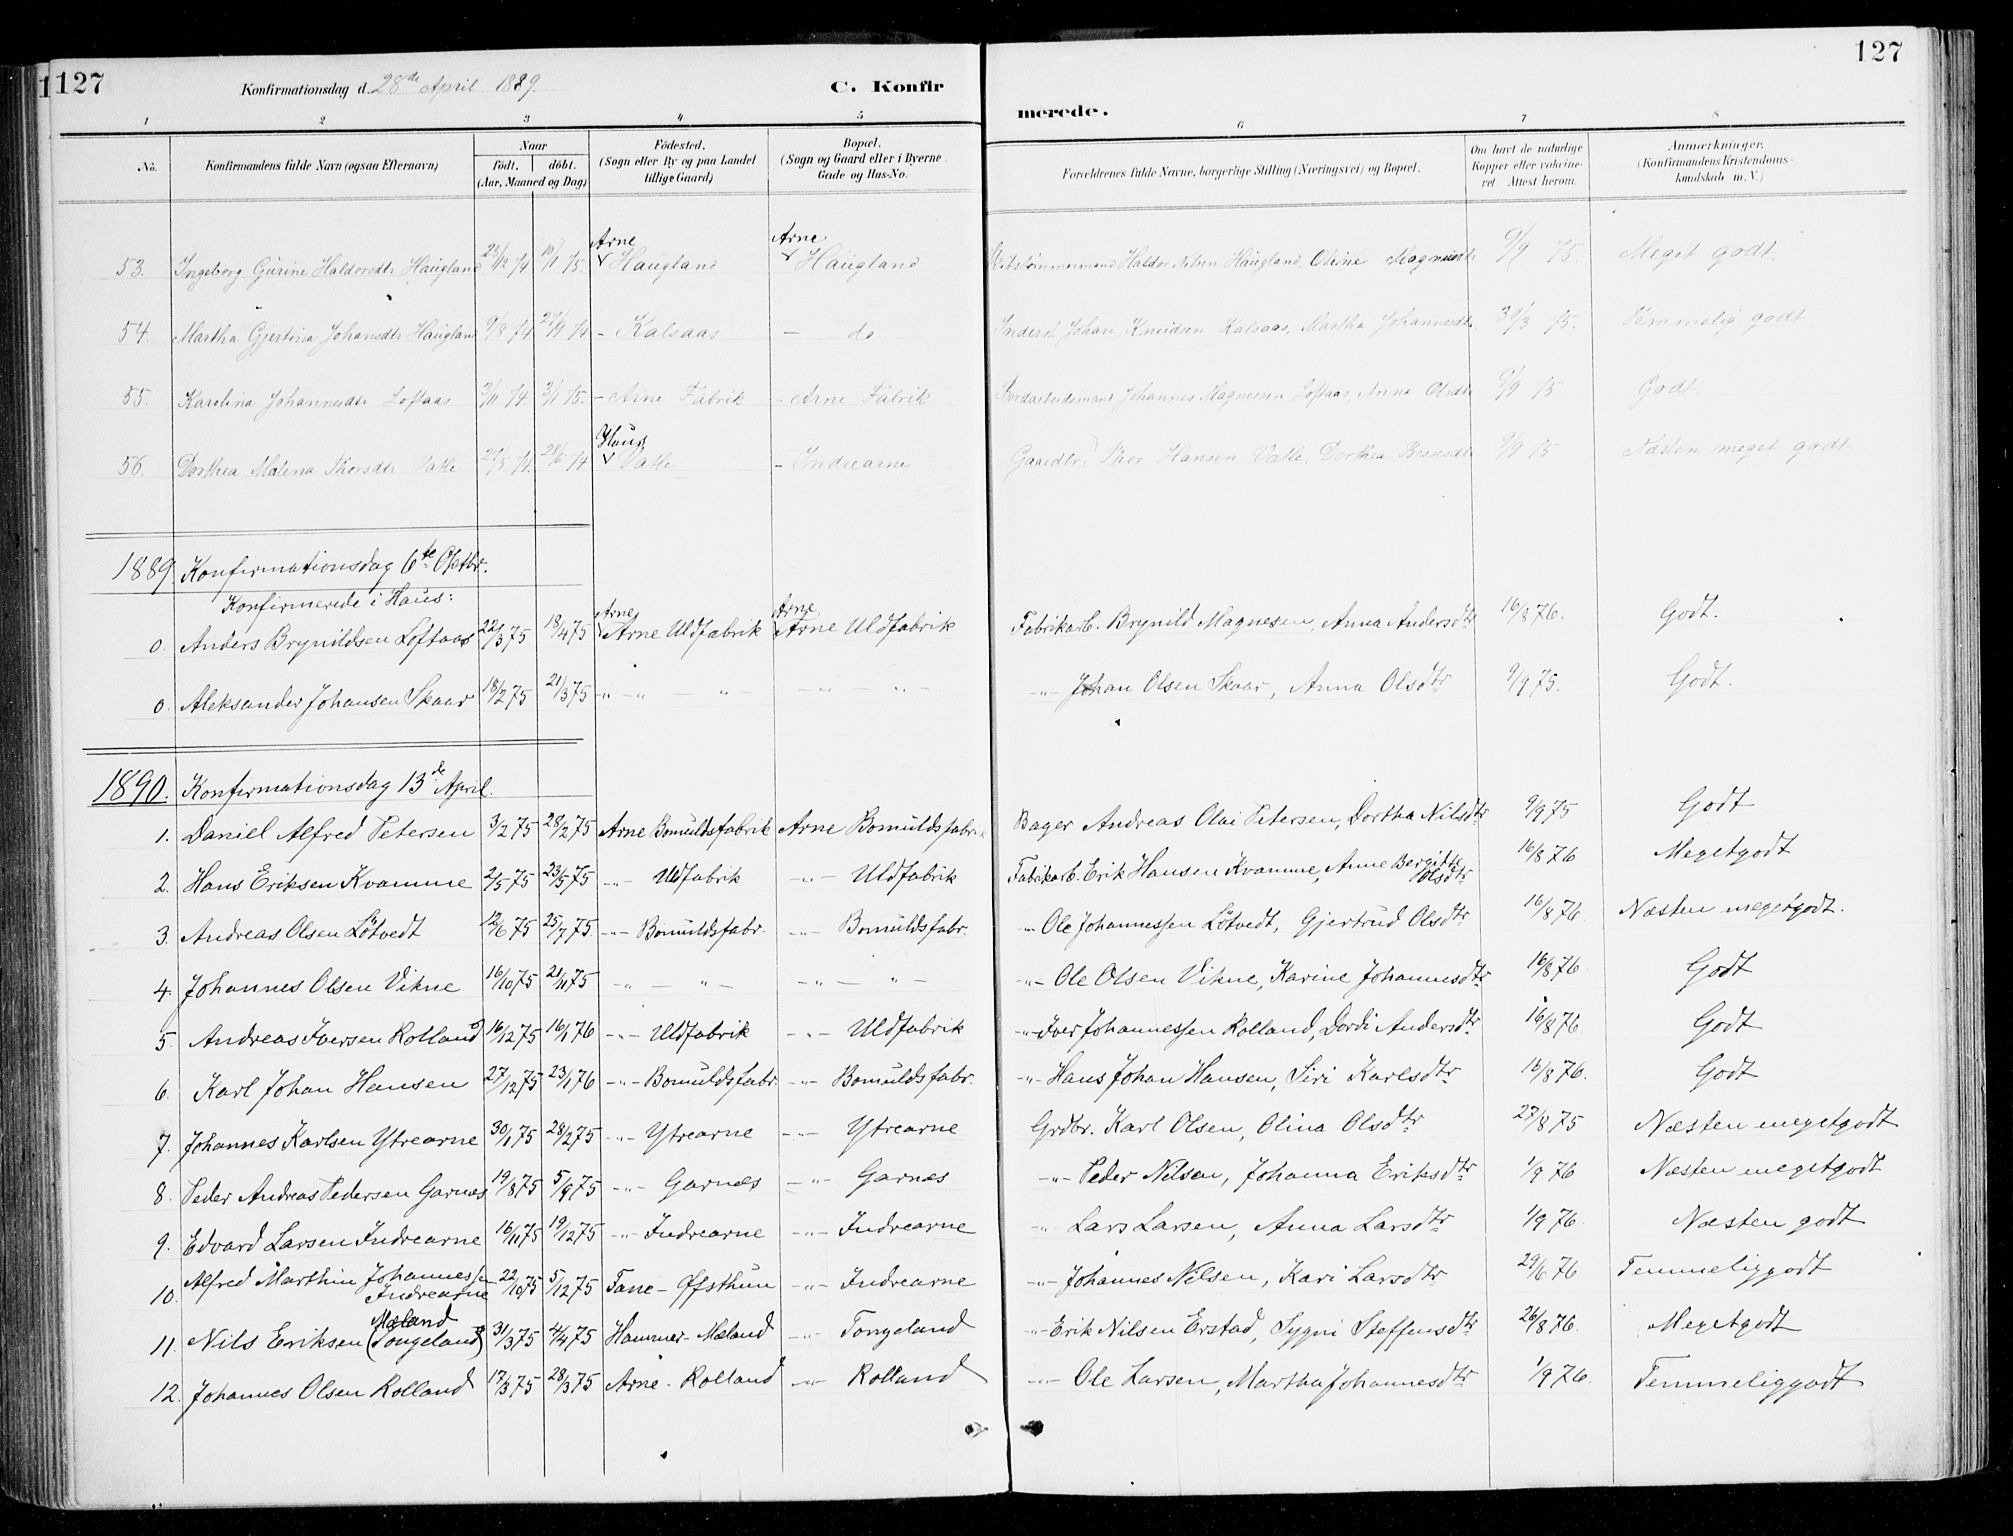 127
Konfirmationsdag d. 28de April 1889.
C. Konfirmerede.
127
1 2 3 4 5 6 7 8
No. Konfirmandens fulde Navn (ogsaa Efternavn) Naar födt. döbt. (Aar, Maaned og Dag) Födested. (Sogn eller By og paa Landet tillige Gaard) Bopæl. (Sogn og Gaard eller i Byerne Gade og Hus-No. Forældrenes fulde Navne, borgerlige Stilling (Næringsvei) og Bopæl. Om havt de naturlige Kopper eller vakcineret Attest herom. Anmærkninger. (Konfirmandens Kristendomskundskab m. V.)
53. Ingeborg Gurine Haldorsdtr Haugland 23/12 74 10/1 75. Arne Haugland Arne Haugland Haldor Nilsen Haugland, Oline Magnusdtr 9/9 75 Meget godt.
54. Martha Gjertina Johansdtr Haugland 9/8 74 27/9 74 - Kalsaas - do Inderst. Johan Knudsen Kalsaas, Martha Johannesdtr 30/3 75. Temmelig godt
55. Karolina Johannesdtr Loftaas 2/11 74. 3/1 75. - Arne Fabrik - Arne Fabrik Jordarbeidsmand Johannes Magnesen Loftaas, Anna Olsdtr 9/9 75 Godt.
56. Dorthea Malena Thorsdtr Valle 27/5 74. 28/6 74 Haus Valle - Indrearne Gaardbr. Thor Hansen Valle, Dorthea 9/9 75 Næsten meget godt
1889. Konfirmationsdag 6te Oktbr.
Konfirmerede i Haus:
0. Anders Brynildsen Loftaas 22/3 75 18/4 75 Arne Arne Uldfabrik Arne Arne Uldfabrik Fabrikarb. Brynild Magnesen, Anna Andersdtr 16/8 76. Godt.
0. Aleksander Johansen Skaar 18/2 75 21/3 75 " - " - " - - " - " - -"- Johan Olsen Skaar, Anna Olsdtr 9/9 75. Godt.
1890. Konfirmationsdag 13de April.
1. Daniel Alfred Petersen 3/2 75 28/2 75 Arne Bomuldsfabrik Arne Bomuldsfabrik Bager Andreas Olai Petersen, Dortha Nilsdtr 9/9 75 Godt
2. Hans Eriksen Kvamme 2/5 75 23/5 75 -"- Uldfabrik -"- Uldfabrik Fabrikarb. Erik Hansen Kvamme, Anne Bergitte Olsdtr 16/8 76 Megetgodt
3. Andreas Olsen Lötvedt 12/6 75 25/7 75 -"- Bomuldsfabr. -"- Bomuldsfabr. -"- Ole Johannessen Lötvedt, Gjertrud Olsdtr 16/8 76 Næsten megetgodt.
4. Johannes Olsen Vikne 16/10 75 21/11 75 -"- - " - -"- - " - -"- Ole Olsen Vikne, Karine Johannesdtr 16/8 76 Godt
5. Andreas Iversen Rolland 16/12 75 16/1 76 -"- Uldfabrik -"- Uldfabrik -"- Iver Johannessen Rolland, Dordi Andersdtr 16/8 76 Godt
6. Karl Johan Hansen 27/12 75 23/1 76 -"- Bomuldsfabr. -"- Bomuldsfabr. -"- Hans Johan Hansen, Siri Karlsdtr 16/8 76. Godt
7. Johannes Karlsen Ytrearne 30/1 75 28/2 75 -"- Ytrearne -"- Ytrearne Grdbr. Karl Olsen, Olina Olsdtr 27/8 75 Næsten megetgodt
8. Peder Andreas Pedersen Garnes 19/8 75 5/9 75 -"- Garnes -"- Garnes -"- Peder Nilsen, Johanna Eriksdtr 1/9 76 Næsten megetgodt
9. Edvard Larsen Indrearne 16/11 75 19/12 75 -"- Indrearne -"- Indrearne -"- Lars Larsen, Anna Larsdtr 1/9 76. Næsten godt
10. Alfred Marthin Johannessen Indrearne 22/10 75 5/12 75 Fane - Øfsthun -"- Indrearne -"- Johannes Nilsen, Kari Larsdtr 29/6 76 Temmeliggodt
11. Nils Eriksen Mæland (Tongeland) 31/3 75 4/4 75 Hammer - Mæland -"- Tongeland -"- Erik Nilsen Erstad, Sygni Steffensdtr 26/8 76. Megetgodt
12. Johannes Olsen Rolland 17/3 75 28/3 75 Arne - Rolland -"- Rolland -"- Ole Larsen, Martha Johannesdtr 1/9 76. Temmeliggodt